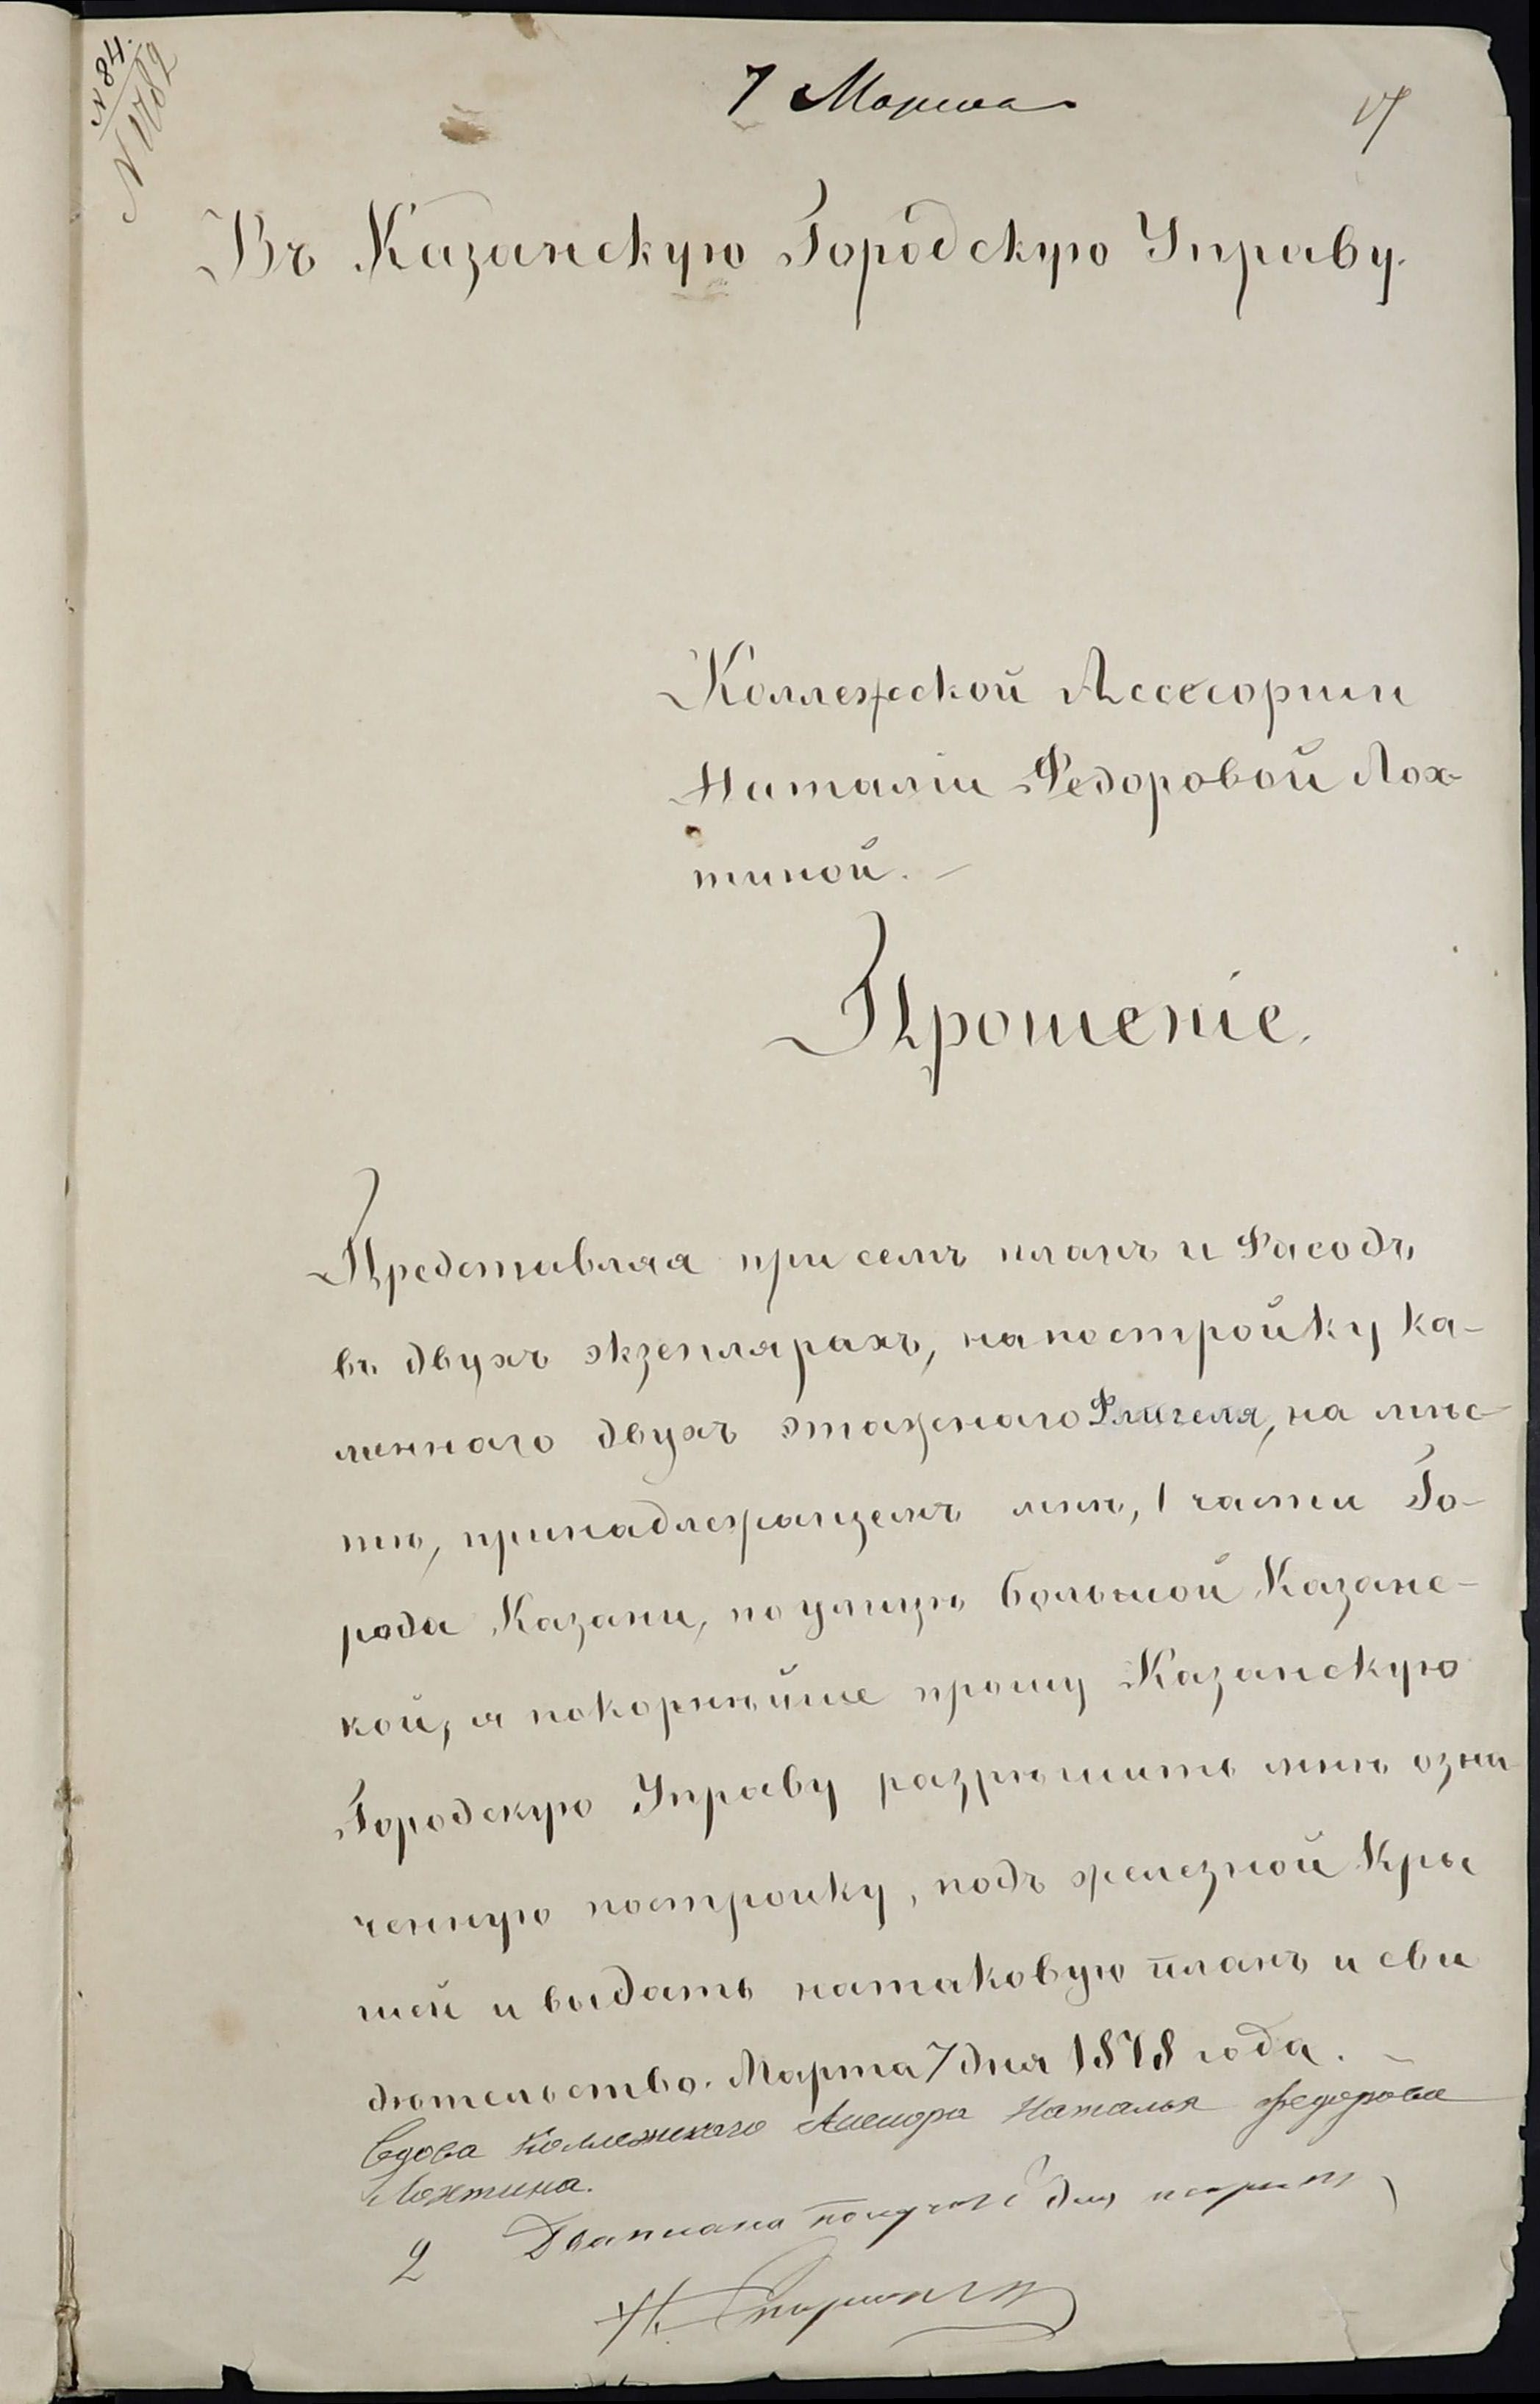 N 84.
N 1782
7 Марта
17
Въ Казанскую Городскую Управу.
Коллежской Ассесорши
Наталіи Федоровой Лох-
тиной.
Прошеніе.
Представляя при семъ планъ и Фасадъ,
въ двухъ экземплярахъ, на постройку ка-
меннаго двухъ этажнаго Флигеля, на мѣс-
тѣ, принадлежащемъ мнѣ, 1 части Го-
рода Казани, по улицѣ большой Казанс-
кой, я покорнѣйше прошу Казанскую
Городскую Управу разрѣшить мнѣ озна
ченную постройку, подъ железной Кры
шей и выдать на таковую планъ и сви
дѣтельство. Марта 7 дня 1878 года.
Вдова Коллежскаго Асесора Наталья Федорова
Лохтина.
2 Два плана получилъ для